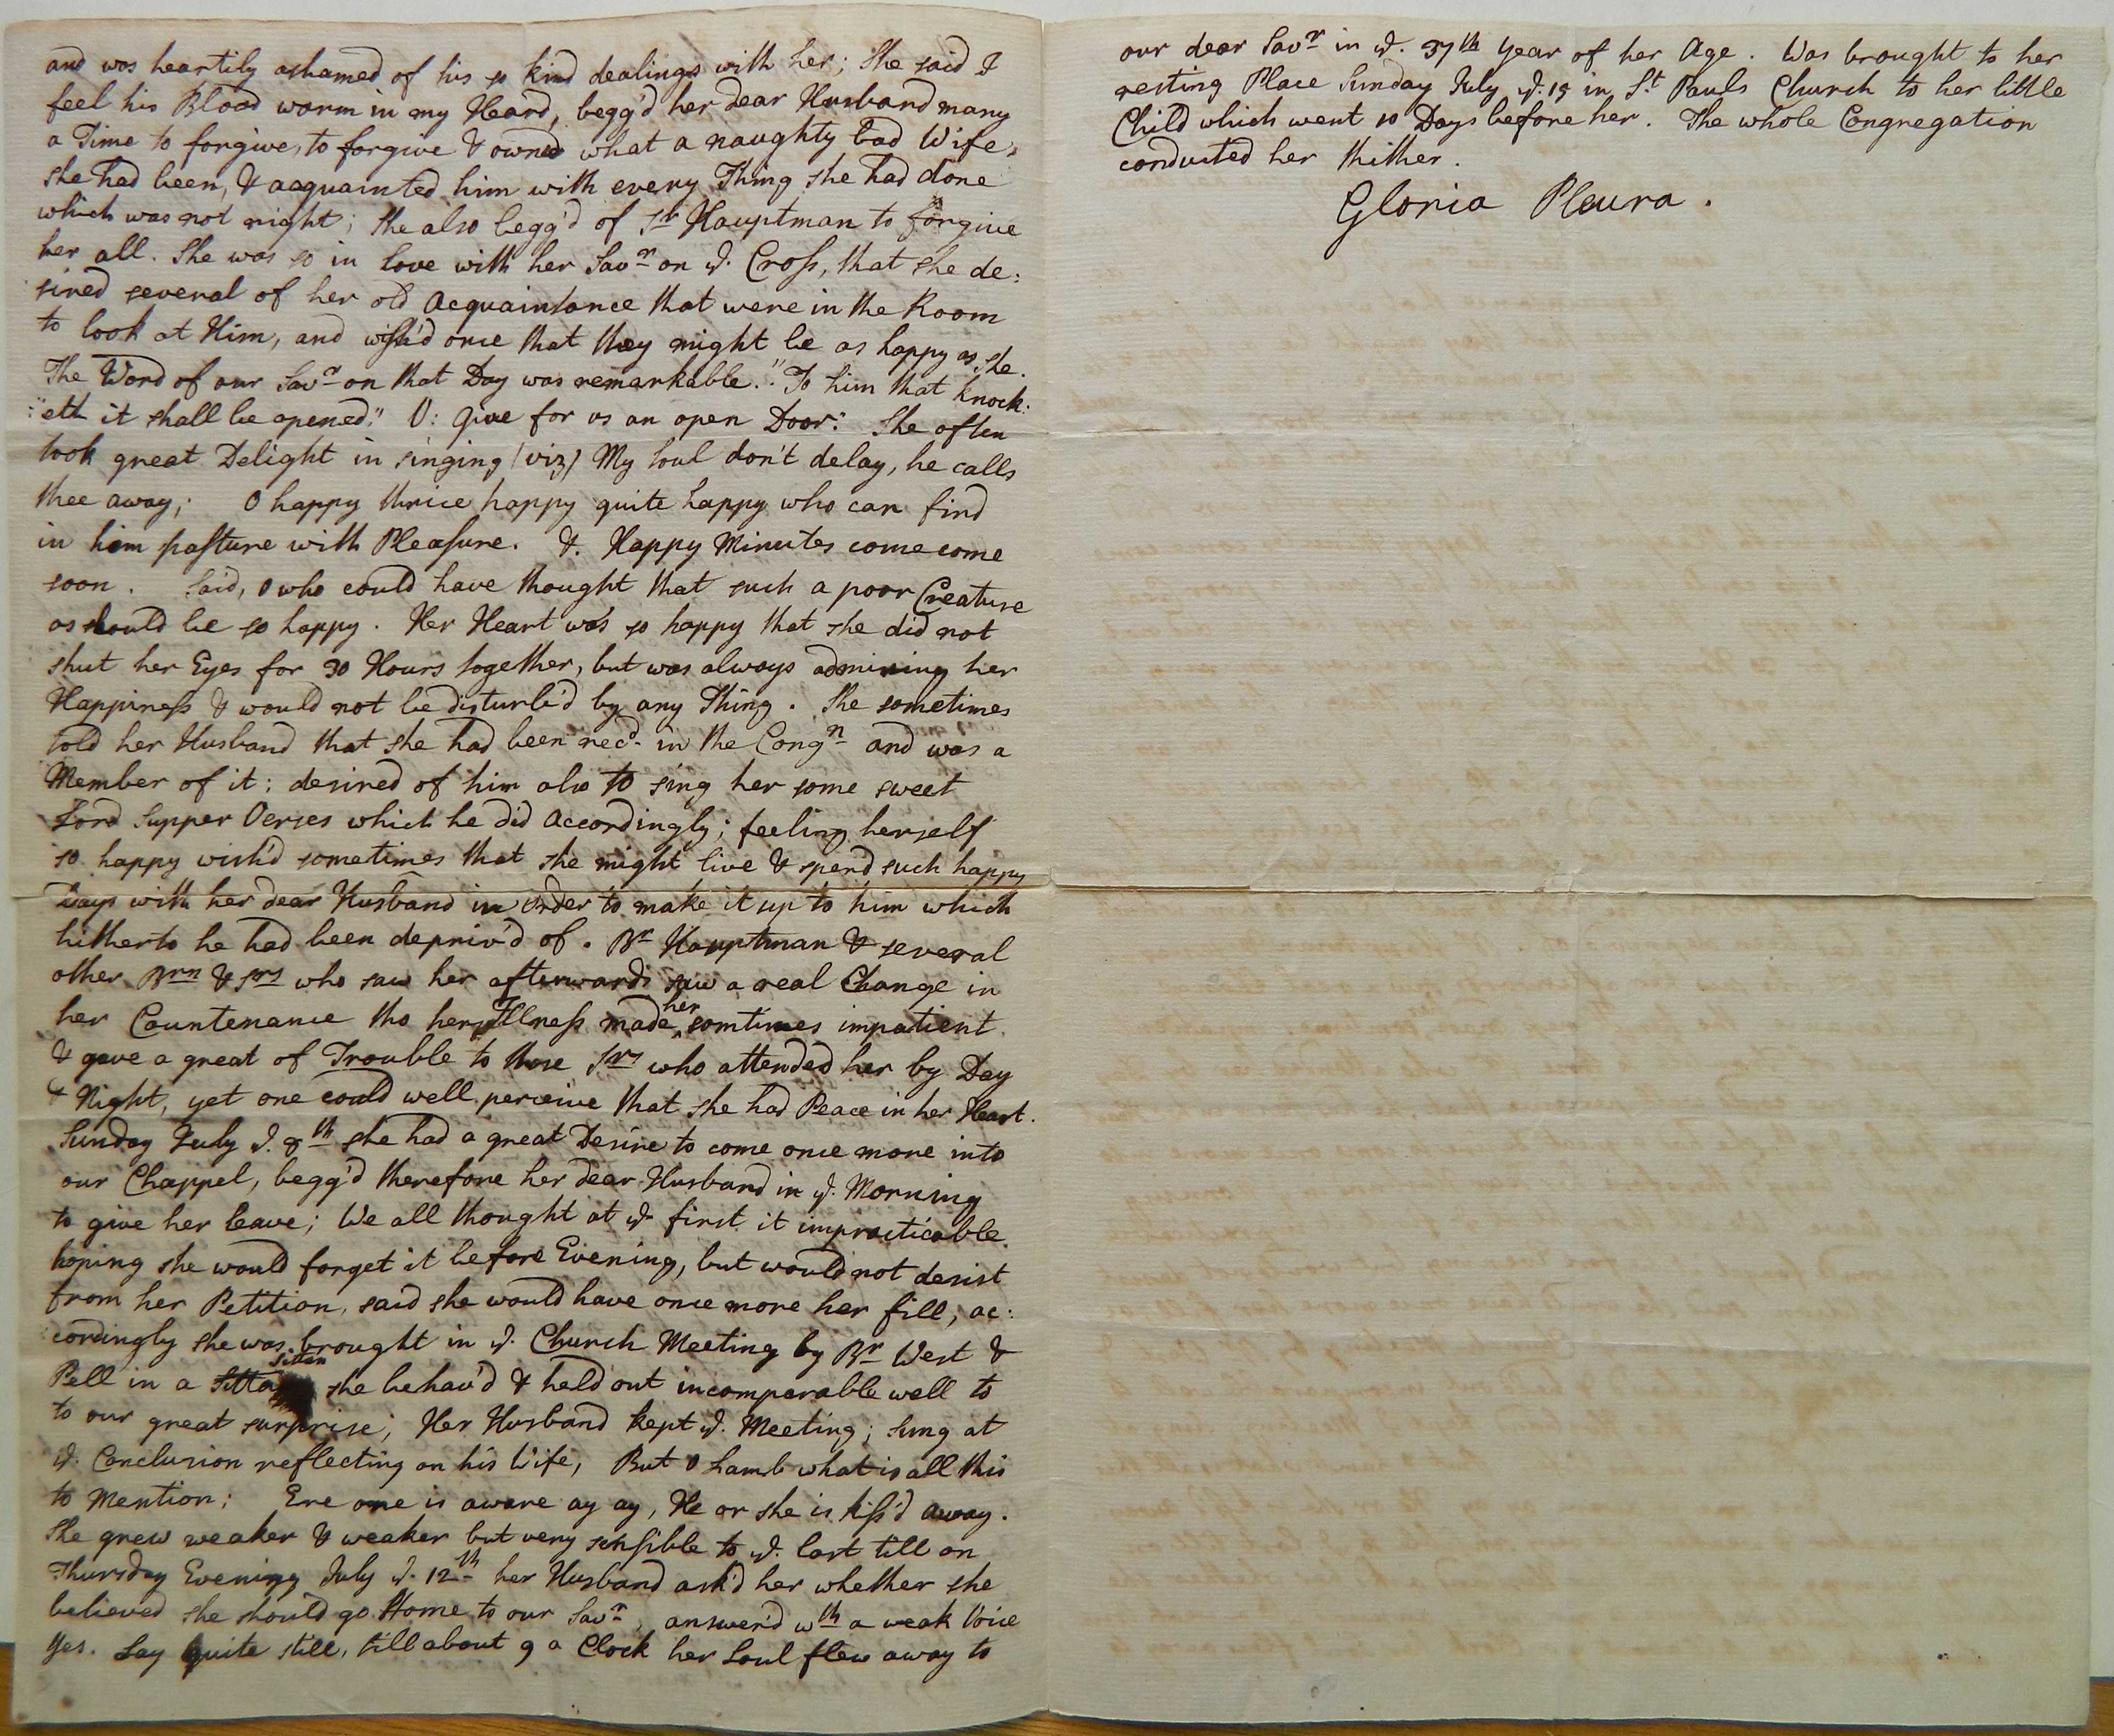 and was heartily ashamed of his so kind dealings with her; She said I
feel his Blood warm in my Heard, begg'd her dear Husband many
a Time to forgive, to forgive & owned what a naughty bad Wife
she had been, & acquainted him with every Thing she had done
which was not right; She also begg'd of Sr Hauptman to forgive
her all. She was so in love with her Savr on ye. Cross, that she de:
sired several of her old Acquaintance that were in the Room
to look at Him, and wish'd once that they might be as happy as she.
The Word of our Savr on that Day was remarkable. "To him that knock:
"eth it shall be opened." V: Give for us an open Door: She often
took great Delight in singing (viz) My Soul don't delay, he calls
thee away; O happy thrice happy quite happy who can find
in him pasture with Pleasure. &. Happy Minutes come come
soon. Said, O who could have thought that such a poor Creature
as should be so happy. Her Heart was so happy that she did not
shut her Eyes for 30 Hours together, but was always admiring her
Happiness & would not be disturb'd by any Thing. She sometimes
told her Husband that she had been recd in the Congn and was a
Member of it; desired of him also to sing her some sweet
Lord Supper Verses which he did Accordingly; feeling herself
so happy wish'd sometimes that she might live & spend such happy
Days with her dear Husband in Order to make it up to him which
hitherto he had been depriv'd of. Br Hauptman & several
other Brn & Srs who saw her afterwards saw a real Change in
her Countenance tho her Illness made her somtimes impatient
& gave a great of Trouble to those Srs who attended her by Day
& Night, yet one could well perceive that she had Peace in her Heart.
Sunday July ye. 8th she had a great Desire to come once more into
our Chappel, begg'd therefore her dear Husband in ye. Morning
to give her leave; We all thought at ye first it impracticable
hoping she would forget it before Evening, but would not desist
from her Petition, said she would have once more her fill, ac:
cordingly she was brought in ye. Church Meeting by Br West &
Pell in a Sittan she behav'd & held out incomparable well to
to our great surprise; Her Husband kept ye. Meeting; Sung at
ye. Conclusion reflecting on his Wife, But O Lamb what is all this
to Mention; Ere one is aware ay ay, He or she is kiss'd away.
She grew weaker & weaker but very sensible to ye. last till on
Thursday Evening July ye 12th her Husband ask'd her whether she
believed she should go Home to our Savr, answer'd wth a weak Voice
Yes. Lay quite still, till about 9 a Clock her Soul flew away to
our dear Savr in ye. 37th Year of her Age. Was brought to her
resting Place Sunday July ye. 15 in St Pauls Church to her little
Child which went 10 Days before her. The whole Congregation
conducted her thither.
Gloria Pleura.